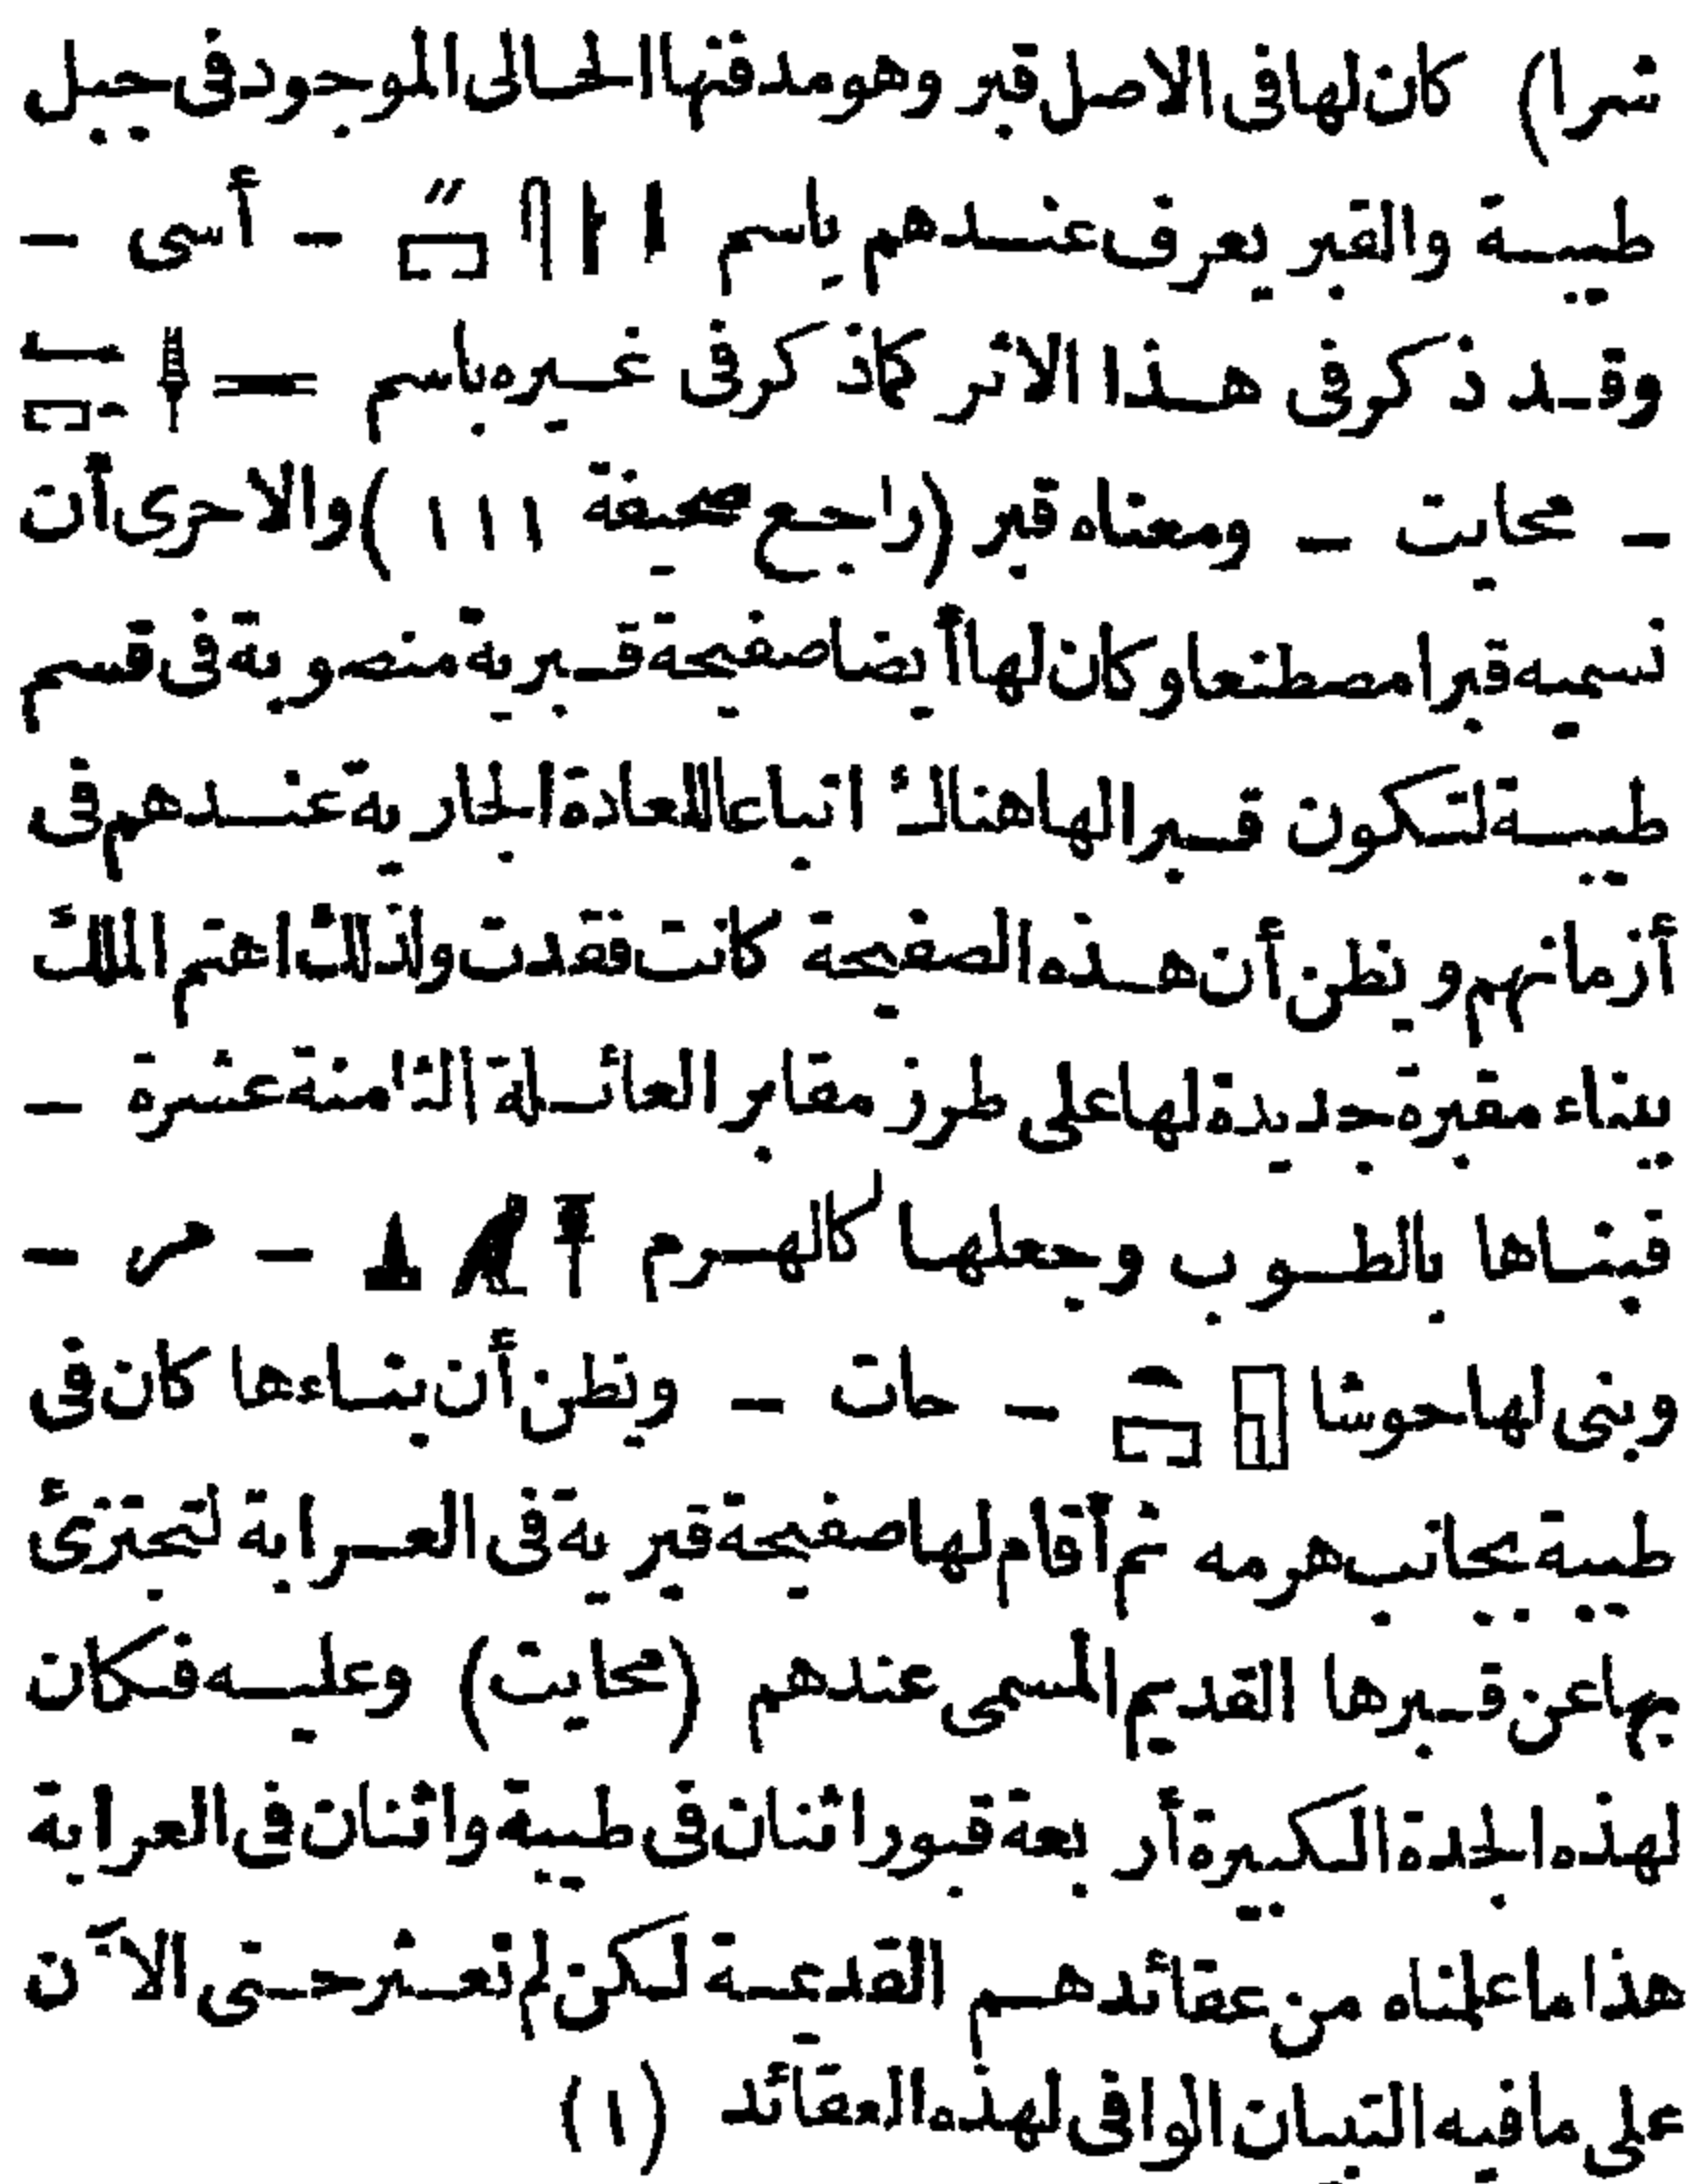 شرا) كان لها فى الاصل قبر وهو مدفنها الحالى الموجود فى جبل
طيبة والقبر يعرف عندهم باسم – أسى –
وقد ذكر فى هذا الاثر كماذكر فى غيره باسم
– محايت – ومعناه قبر (راجع صحيفة ١١١) والاحرى أن
نسميه قبرا مصطنعا وكان لها أيضا صفيحة قبرية منصوبة فى قسم
طيبة لتكون قبرا لها هناك اتباعا للعادة الجارية عندهم فى
أزمانهم ونظن أن هذه الصفيحة كانت فقدت ولذلك اهتم الملك
ببناء مقبرة جديدة لها على طرز مقابر العائلة الثامنة عشرة –
فبناها بالطوب وجعلها كالهرم – مر –
وبنى لها حوشا – حات – ونظن أن بناءها كان فى
طيبة بجانب هرمه ثم أقام لها صفيحة قبرية فى العرابة لتجتزئ
بها عن قبرها القديم المسمى عندهم (محايت) وعليه فكان
لهذه الجدة الكبيرة أربعة قبور اثنان فى طيبة واثنان فى العرابة
هذا ما علمناه من عقائدهم القديمة لكن لم نعثر حتى الآن
على ما فيه التبيان الوافى لهذه العقائد (١)